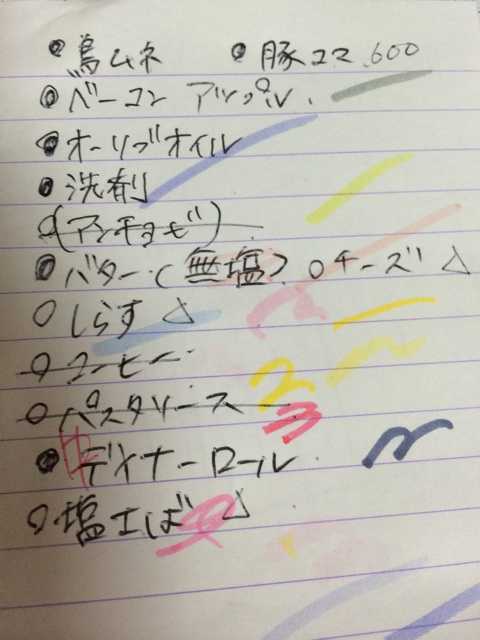 ●鳥ムネ ●豚コマ.600
●ベーコン アップル.
●オーリブオイル
●洗剤
○(アンチョビ)
●バター(無塩) ○チーズ △
○しらす △
○コーヒー
○パスタソース 2 3
●ディナーロール
○塩さば △